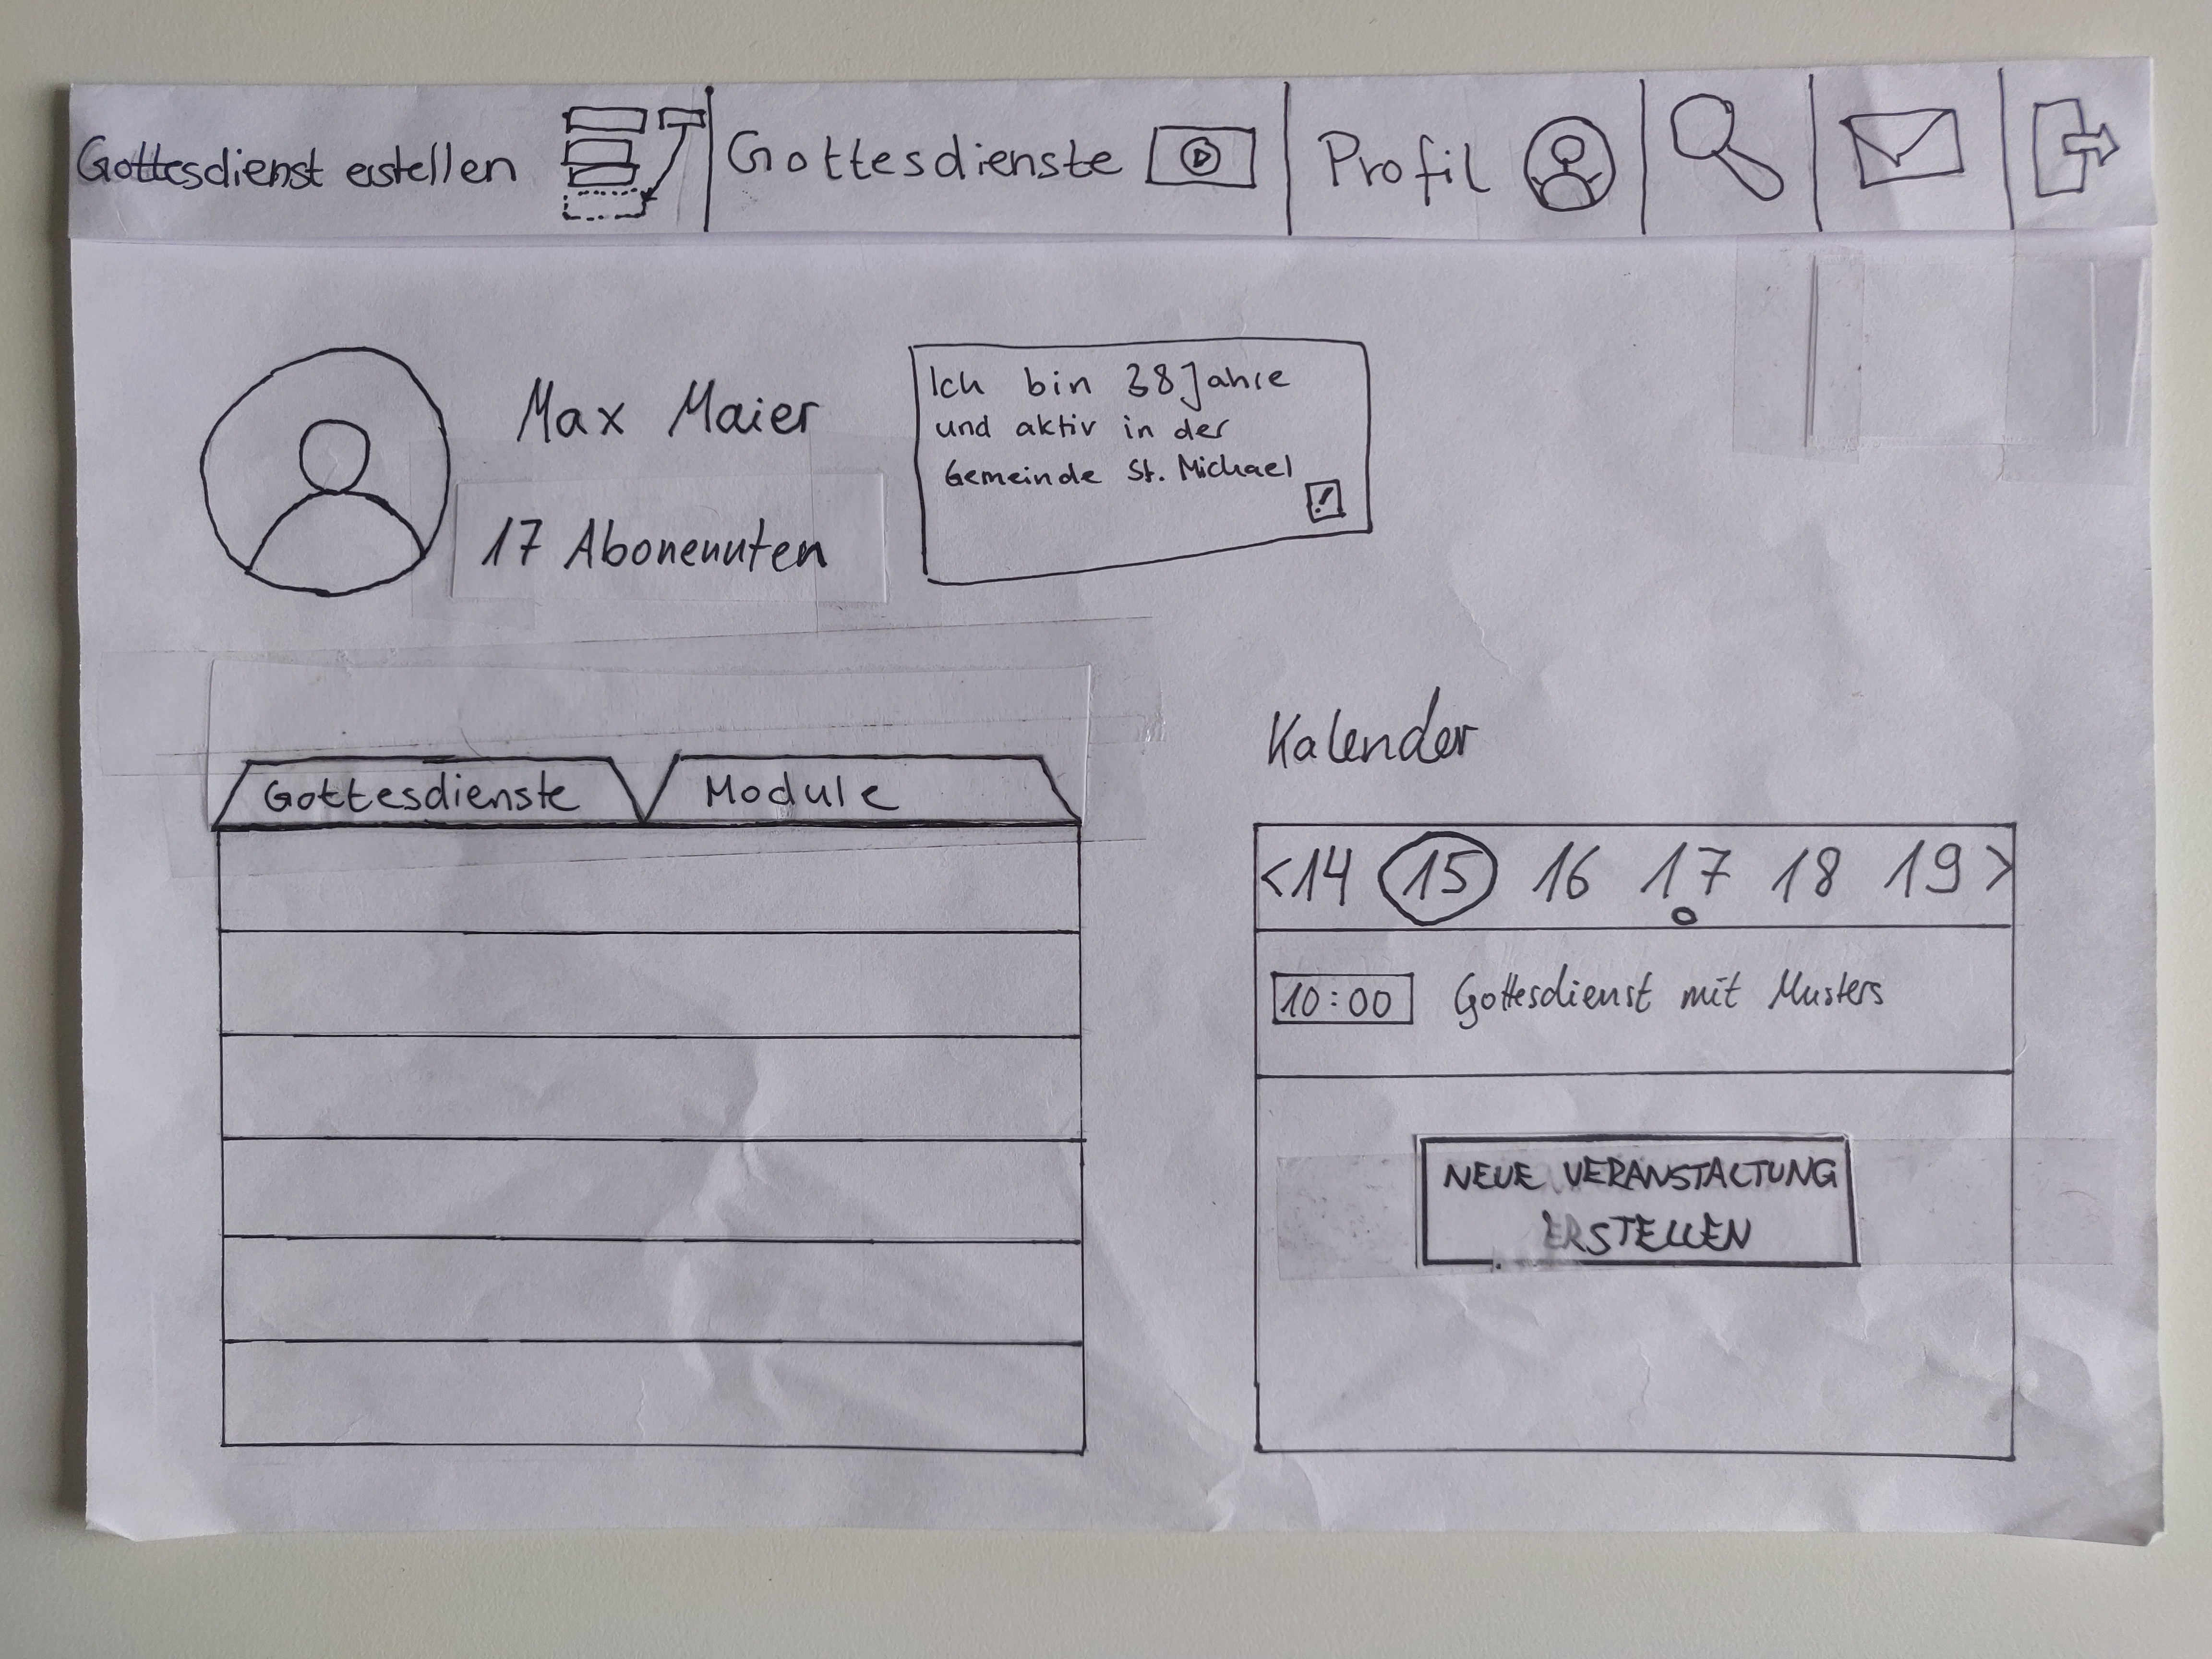 Gottesdienst erstellen
Gottesdienste
Profil
Max Maier
17 Abonennten
Ich bin 38 Jahre
und aktiv in der
Gemeinde St. Michael
Gottesdienste
Module
Kalender
<14 15 16 17 18 19>
10:00 Gottesdienst mit Musters
NEUE VERANSTALTUNG
ERSTELLEN